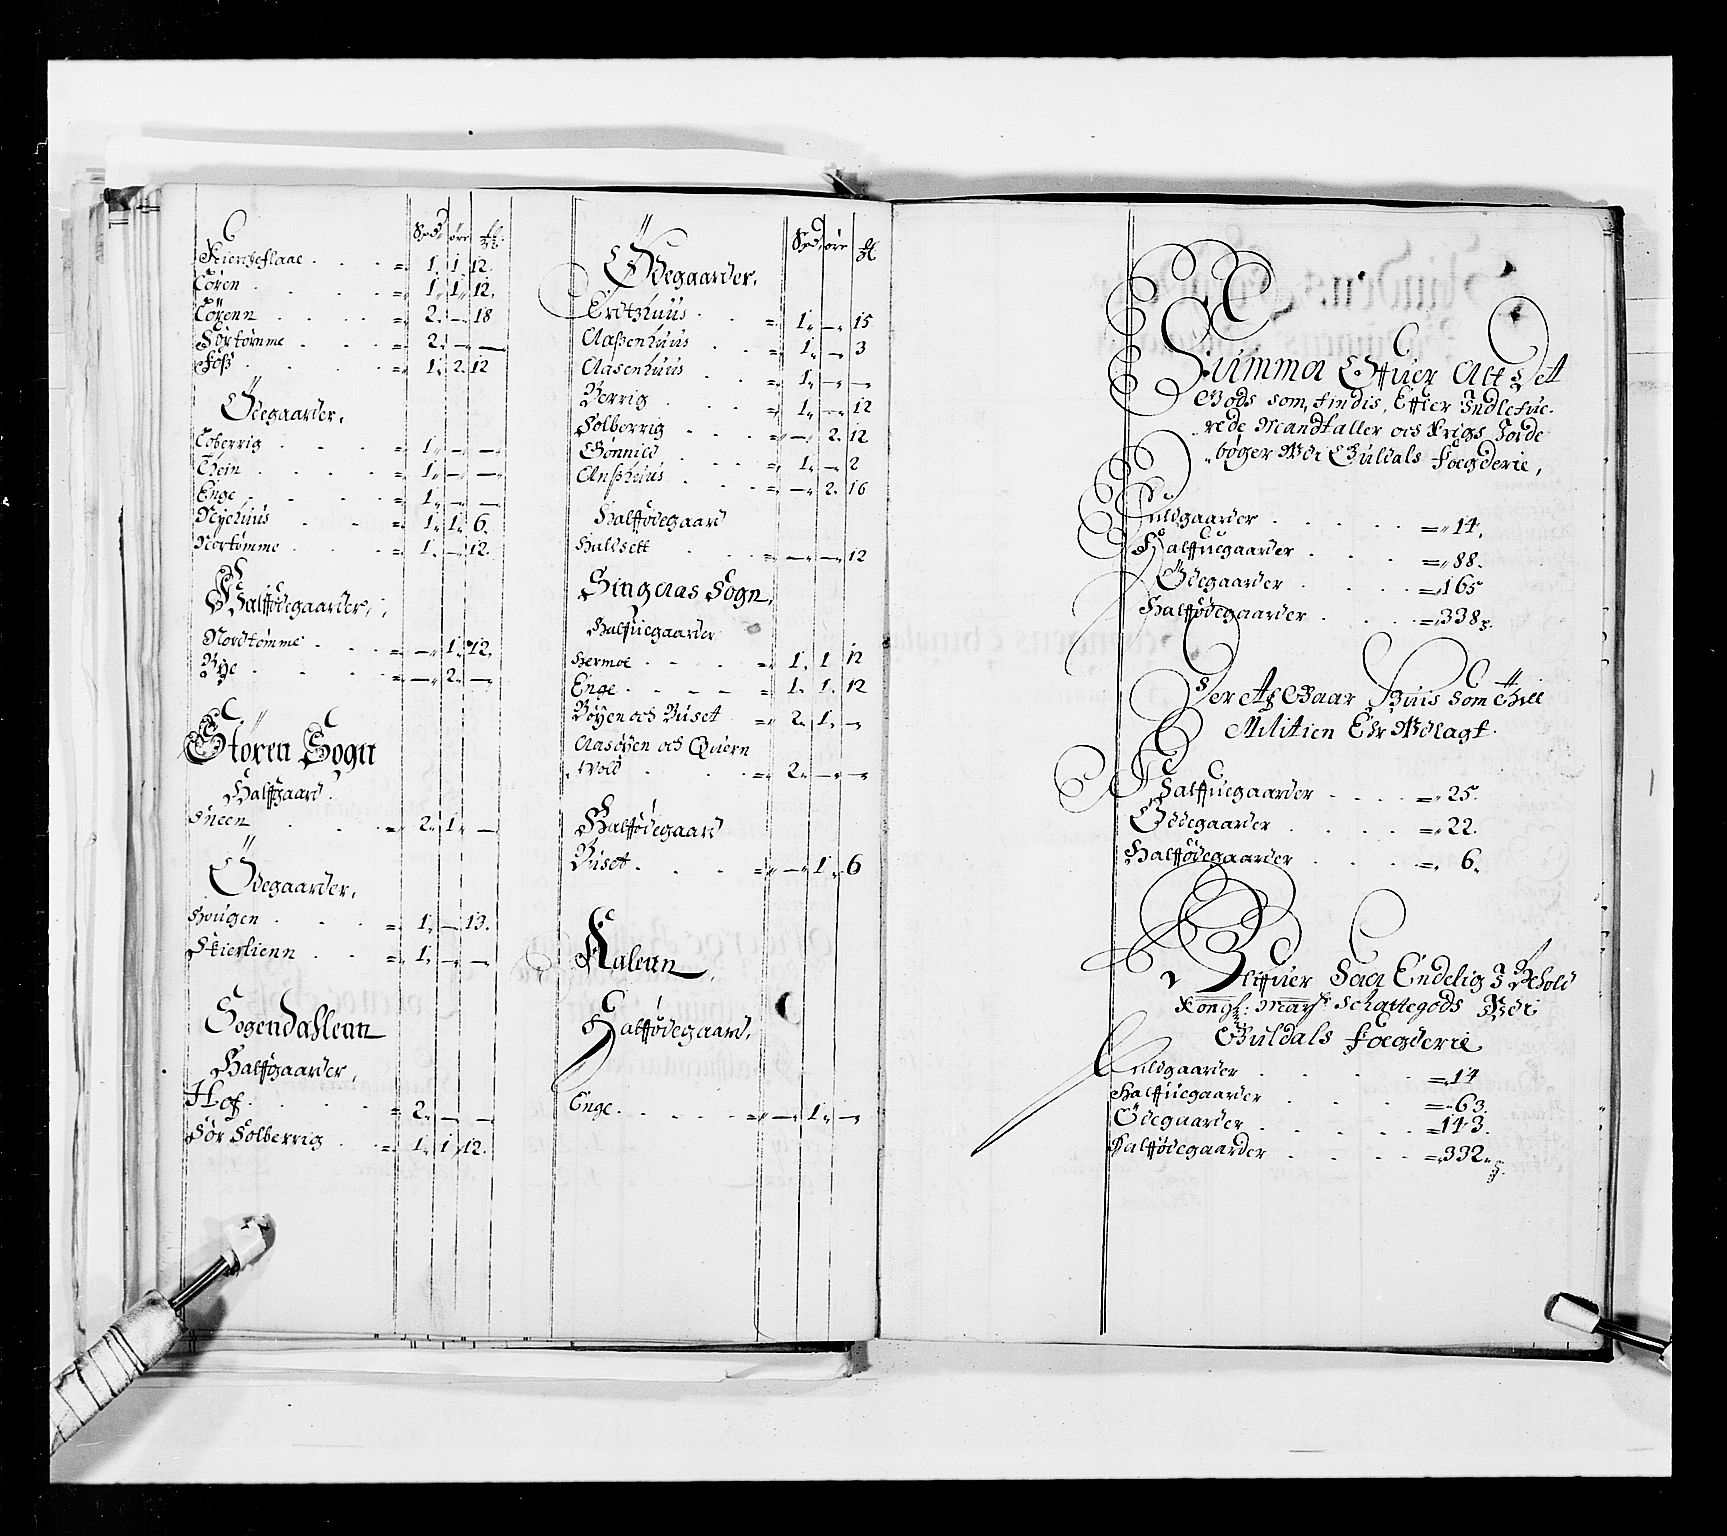 Spd. øre
Kiertzflaae = 1. 1. 12.
Cøren = 1. 1. 12.
Cørenn = 2. — 18
Sørtømme = 2. — —
Foss = 1. 2. 12
Ødegaarder.
Coberrig = 1. — —
Enge = 1. — —
Nyehuus = 1. 1. 6.
Nortømme = 1. — 12.
Halffødegaarder.
Nordtømme = — 1. 12.
Bye = — 2. —
Støren Sogn
Halffgaard.
Sneen = 2. 1. —
Ødegaarder.
Hougen = 1. — 13.
Skierlienn = 1. — —
Sogendahlenn
Halffgaarder.
Hof = 2. — —
Sør Solberrig = 1. 1. 12.
Spd. øre
Ødegaarder.
Critzhuus = 1. — 15
Aassenhuus = 1. — 3
Aasenhuus = 1. — —
Berrig = 1. — 12
Solberrig = — 2. 12
Gønnild = 1. — 2
Ansshuus = — 2. 16
Halffødegaard
Haldsett = — — 12
Singsaas Sogn.
Halfuegaarder
Hermoe = 1. 1 12
Enge = 1. 1. 12
Bøyen och Buset = 2. 1. —
Aasøyen och Quern
Wold = 2. — —
Halffødegaard
Buset = — 1. 6
Aalenn
Halffødegaard.
Enge = — 1. —
Summa Offuer Alt Det
Gods som findis, Effter Indlefue-
rede Mandtaller och Krigs Jorde
bøger Udi Guldals Fogderie,
Fuldgaarder = 14.
Halffuegaarder = 88.
Ødegaarder = 165
Halffødegaarder = 338
Der Af Gaar Huis som Thill
Militien Ehr Udlagt.
Halffuegaarder = 25.
Ødegaarder = 22.
Halffødegaarder = 6.
Bliffuer Saa Endelig I Behold
Kongl: May:ts Schattegods Udi
Guldals Fogderie
Fuldgaarder = 14
Halffuegaarder = 63.
Ødegaarder = 143.
Halffødegaarder = 332.